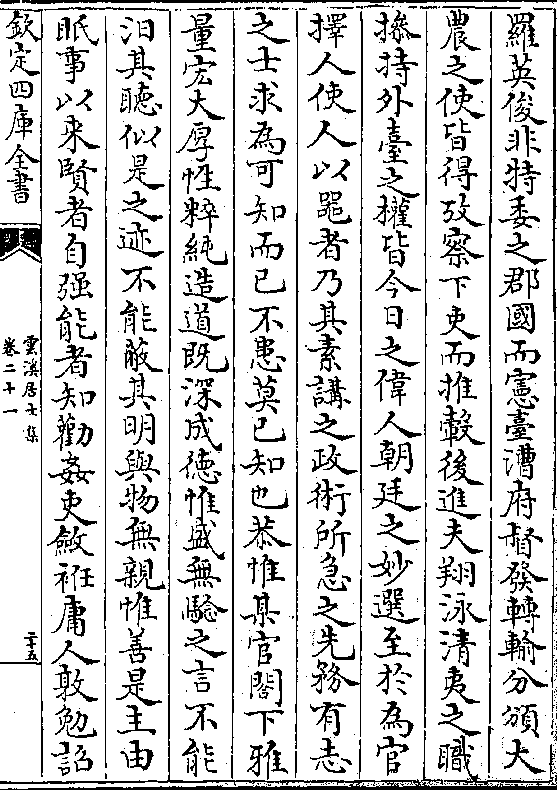 羅英俊非特委之郡國而憲臺漕府督發轉輸分頒大
農之使皆得攷察下吏而推轂後進夫翔泳清夷之職
操持外臺之權皆今日之偉人朝廷之妙選至於為官
擇人使人以器者乃其素講之政術所急之先務有志
之士求為可知而已不患莫已知也恭惟某官閣下雅
量宏大厚性粹純造道既深成德惟盛無驗之言不能
汨其聽似是之迹不能蔽其明與物無親惟善是主由
眂事以来賢者自强能者知勸姦吏斂袵庸人敦勉詔
欽定四庫全書
雲溪居士集
卷二十一
二十五